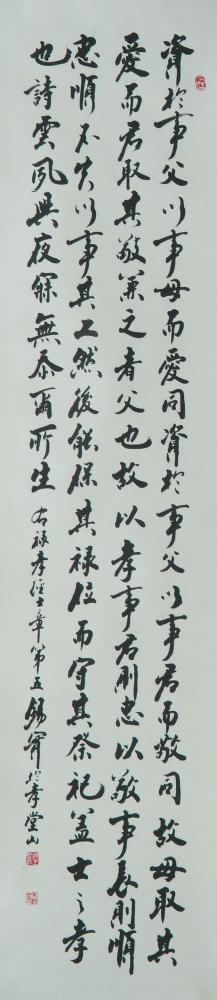 資於事父以事母而愛同資於事父以事君而敬同故母取其
愛而君取其敬兼之者父也故以孝事君則忠以敬事長則順
忠順不失以事其上然後能保其祿位而守其祭祀蓋士之孝
也詩雲夙興夜寐無忝爾所生 右祿孝經士章第五 錫 於孝堂山